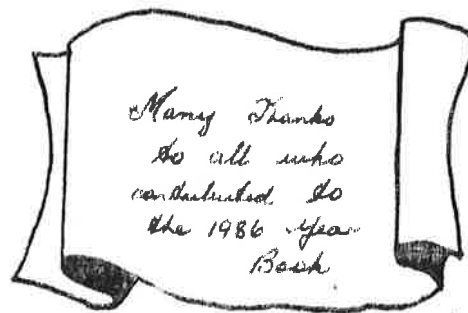 Many Thanks
to all who
contributed to
the 1986 Year
Book